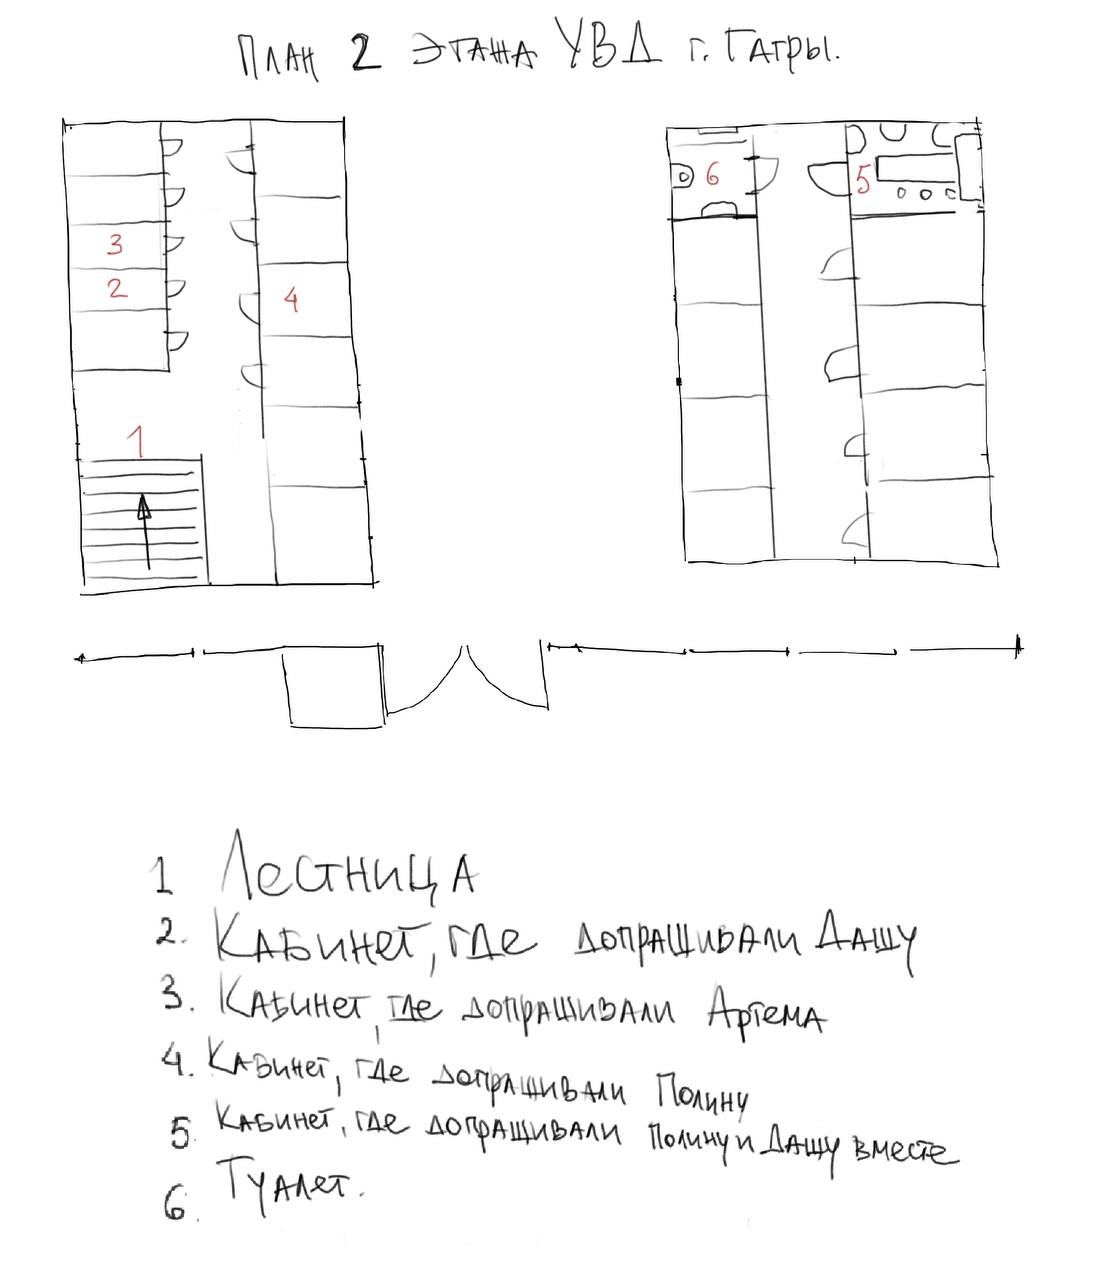 План 2 этажа УВД г. Гагры.
6
5
3
2
4
1
1 Лестница
2. Кабинет, где допрашивали Дашу
3. Кабинет, где допрашивали Артема
4. Кабинет, где допрашивали Полину
5. Кабинет, где допрашивали Полину и Дашу вместе
6. Туалет.